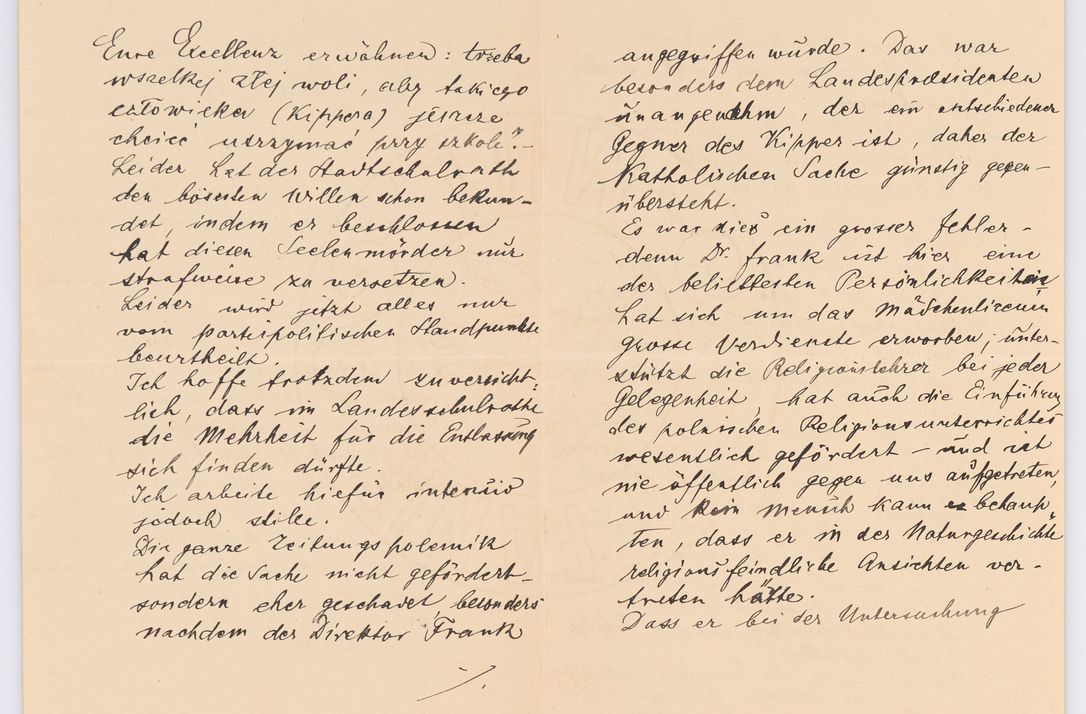 Eure Excellenz erwähnen: trzeba
wszelkiej złej woli, aby takiego
człowieka (Kippera) jeszcze
chcieć utrzymać przy szkole?-
Leider hat der Stadtschulrath
den bösesten Willen schon bekun-
det, indem er beschlossen
hat diesen Seelenmörder nur
strafweise zu versetzen.
Leider wird jetzt alles nur
vom parteipolitischen Standpunkte
beurtheilt.
Ich hoffe trotzdem zuversicht-
lich, dass im Landesschulrathe
die Mehrheit für die Entlassung
sich finden dürfte.
Ich arbeite hiefür intensiv
jedoch stille.
Die ganze Zeitungspolemik
hat die Sache nicht gefördert-
sondern eher geschadet, besonders
nachdem der Direktor Frank
./.
angegriffen wurde. Das war
besonders dem Landespräsidenten
unangenehm, der ein entschiedener
Gegner des Kipper ist, daher der
Katholischen Sache günstig gegen-
übersteht.
Es war dies ein grosser Fehler-
denn Dr. Frank ist hier eine
der beliebtesten Persönlichkeiten
hat sich um das Mädchenlizeum
grosse Verdienste erworben, unter-
stützt die Religionslehrer bei jeder
Gelegenheit, hat auch die Einführung
des polnischen Religionsunterrichtes
wesentlich gefördert - und ist
nie öffentlich gegen uns aufgetreten,
und kein Mensch kann behaup-
ten, dass er in der Naturgeschichte
religionsfeindliche Ansichten ver-
treten hätte.
Dass er bei der Untersuchung